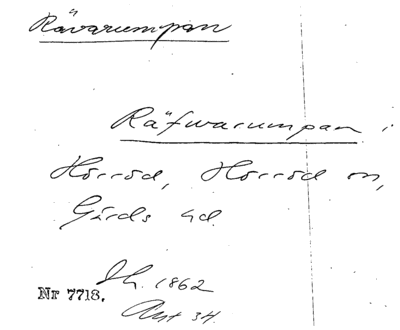 Rävarumpan
Räfwarumpan i
Hörröd, Hörröd sn,
Gärds hd.
1862
Nr 7718.
Akt 34.